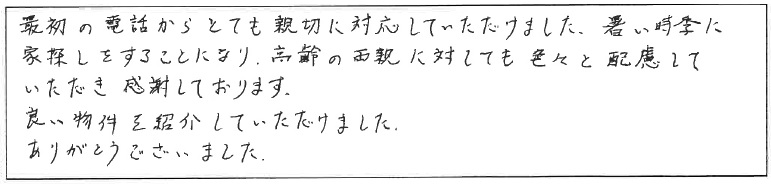 最初の電話からとても親切に対応していただけました、暑い時季に
家探しをすることになり、高齢の両親に対しても色々と配慮して
いただき感謝しております。
良い物件を紹介していただけました。
ありがとうございました。